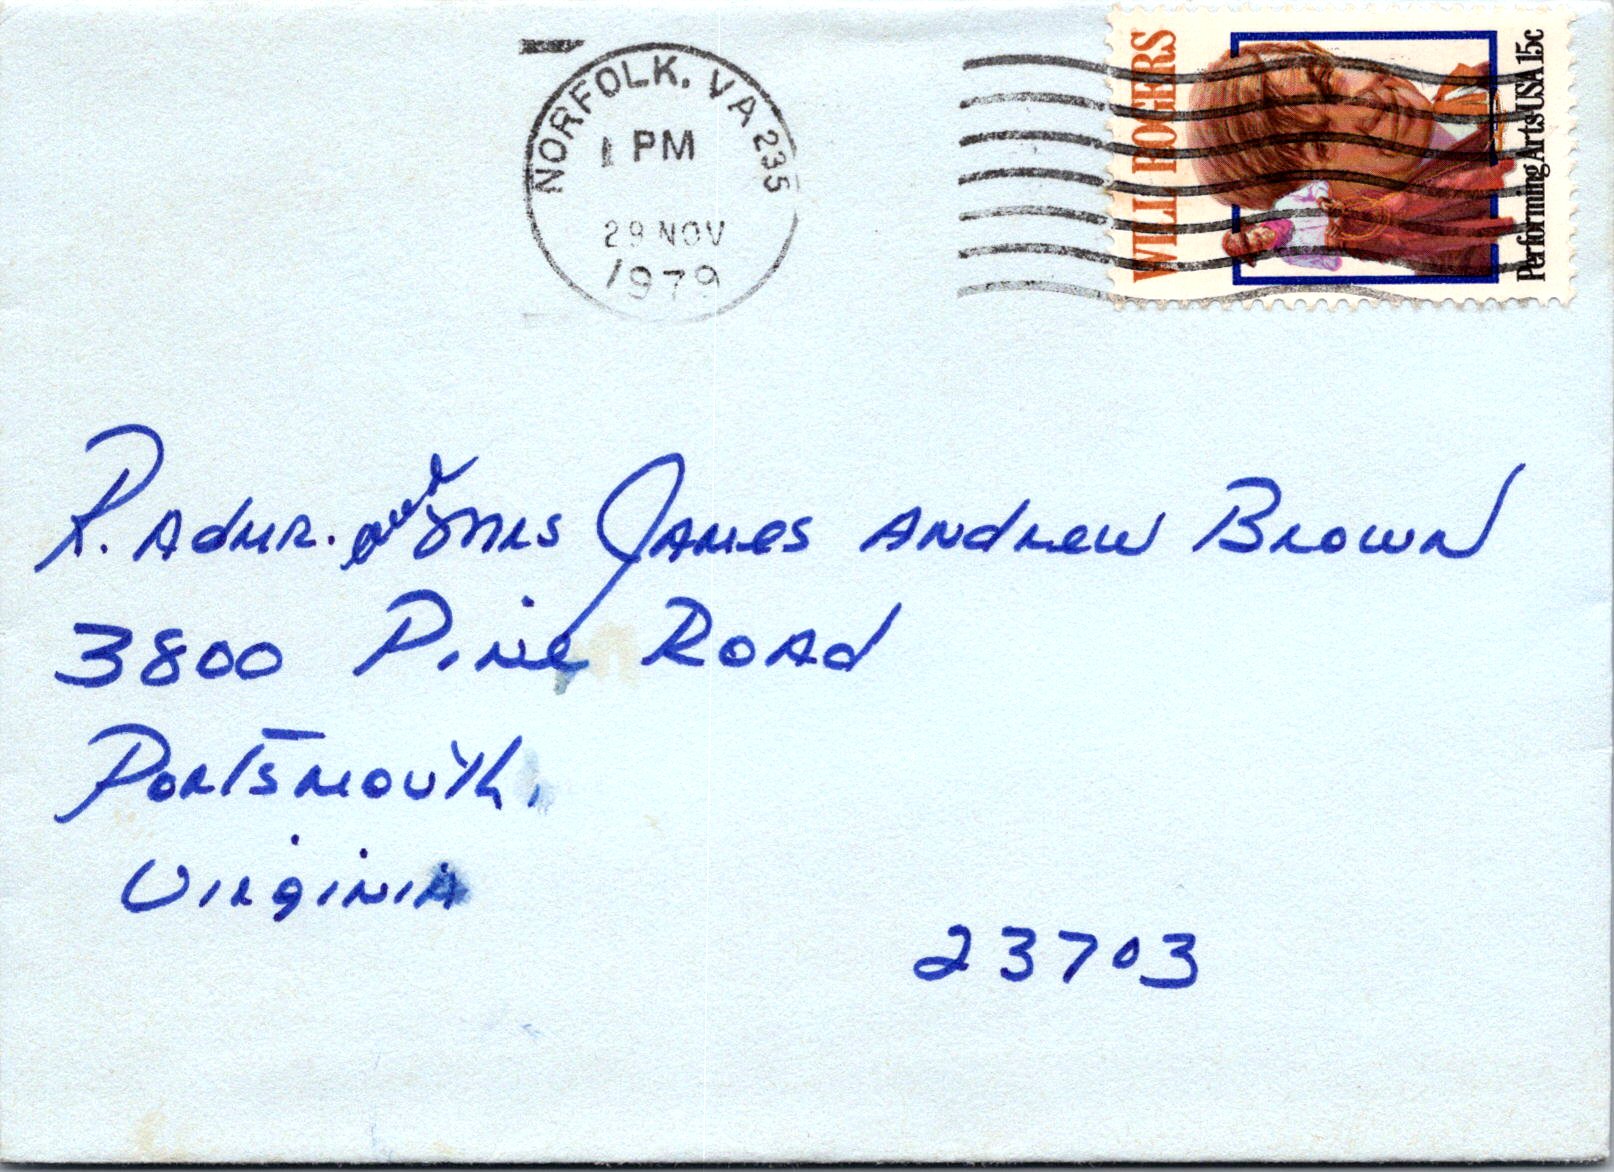 NORFOLK, VA 235
1 PM
29 NOV
1979
WILL ROGERS
Performing Arts USA 15c
R. Admr. and Mrs James Andrew Brown
3800 Pine Road
Portsmouth,
Virginia
23703